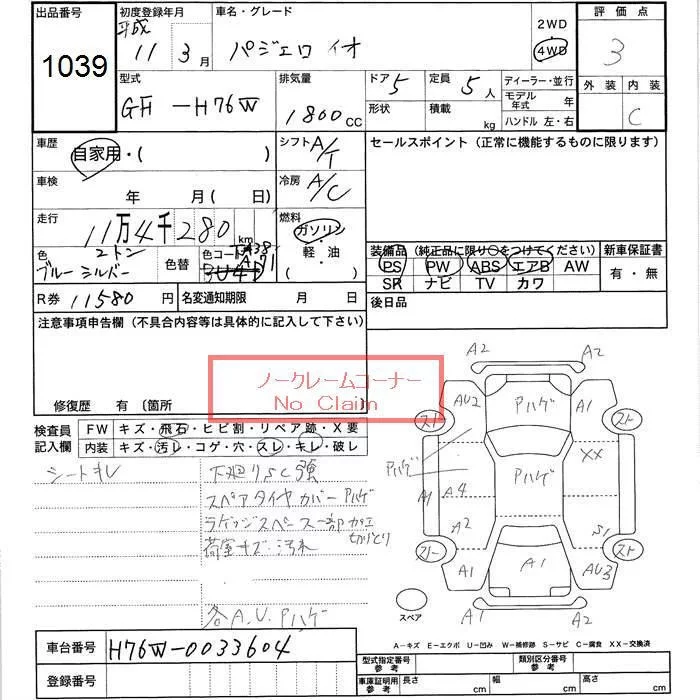 出品番号 初度登録年月 車名・グレード 評価点
1039 平成 11 3月 パジェロ イオ 2WD 4WD 3
型式 排気量 ドア 5 定員 5人 ディーラー・並行 外装 内装
GF-H76W 1800cc 形状 積載 kg モデル年式 年 C
ハンドル 左・右
車歴 シフト A/T セールスポイント (正常に機能するものに限ります)
自家用・( )
車検 冷房 A/C
年 月(日)
走行 燃料
11万4千280km ガソリン
色 2トン 色替 色コード 軽・油 装備品 (純正品に限り○をつけてください) 新車保証書
ブルー シルバー ( ) PS PW ABS エアB AW 有・無
SR ナビ TV カワ
R券 11580円 名変通知期限 月 日 後日品
注意事項申告欄 (不具合内容等は具体的に記入して下さい)
ノークレームコーナー
No Claim
修復歴 有 〔箇所
検査員 FW キズ・飛石・ヒビ割・リペア跡・X要
記入欄 内装 キズ・汚レ・コゲ・穴・スレ・キレ・破レ
シートキレ 下廻りSC強
スペアタイヤカバーPハゲ
ラゲッジスペース一部加工
切りとり
荷室キズ・汚れ
各A.U.Pハゲ
A2 A2
AU2 Pハゲ A1
スト スト
XX
Pハゲ Pハゲ
A1 A4
A2 S1
スリー スト
A1 A1 AU3
A1 A2
スペア
A-キズ E-エクボ U-凹み W-補修跡 S-サビ C-腐食 XX-交換済
車台番号 H76W-0033604
登録番号
型式指定番号 参考 類別区分番号 参考
車庫証明用 参考 長さ cm 幅 cm 高さ cm